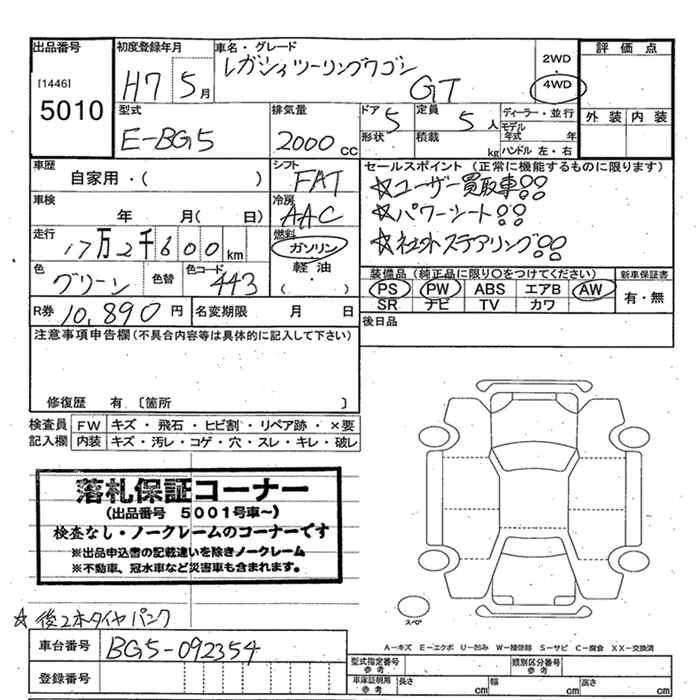 出品番号 初度登録年月 車名・グレード 2WD 評価点
[1446] H7 5月 レガシィツーリングワゴン GT 4WD
5010 型式 排気量 ドア 5 定員 5人 ディーラー・並行 外装 内装
E-BG5 2000cc 形状 積載 kg モデル年式 年
ハンドル 左・右
車歴 シフト セールスポイント (正常に機能するものに限ります)
自家用・( ) FAT ☆ユーザー買取車!!
車検 冷房 ☆パワーシート!!
年 月( 日) AAC ☆社外ステアリング!!
走行 燃料
17万2千600km ガソリン
色 色替 色コード 軽油 装備品 (純正品に限り○をつけてください) 新車保証書
グリーン 443 ・( ) PS PW ABS エアB AW 有・無
SR ナビ TV カワ
R券 10,890円 名変期限 月 日 後日品
注意事項申告欄 (不具合内容等は具体的に記入して下さい)
修復歴 有 〔箇所 〕
検査員 FW キズ・飛石・ヒビ割・リペア跡・×要
記入欄 内装 キズ・汚レ・コゲ・穴・スレ・キレ・破レ
落札保証コーナー
(出品番号 5001号車~)
検査なし・ノークレームのコーナーです
※出品申込書の記載違いを除きノークレーム
※不動車、冠水車など災害車も含まれます。
☆後2本タイヤパンク
スペア
車台番号 BG5-092354
登録番号
A-キズ E-エクボ U-凹み W-補修跡 S-サビ C-腐食 XX-交換済
型式指定番号 参考 類別区分番号 参考
車庫証明用 参考 長さ cm 幅 cm 高さ cm